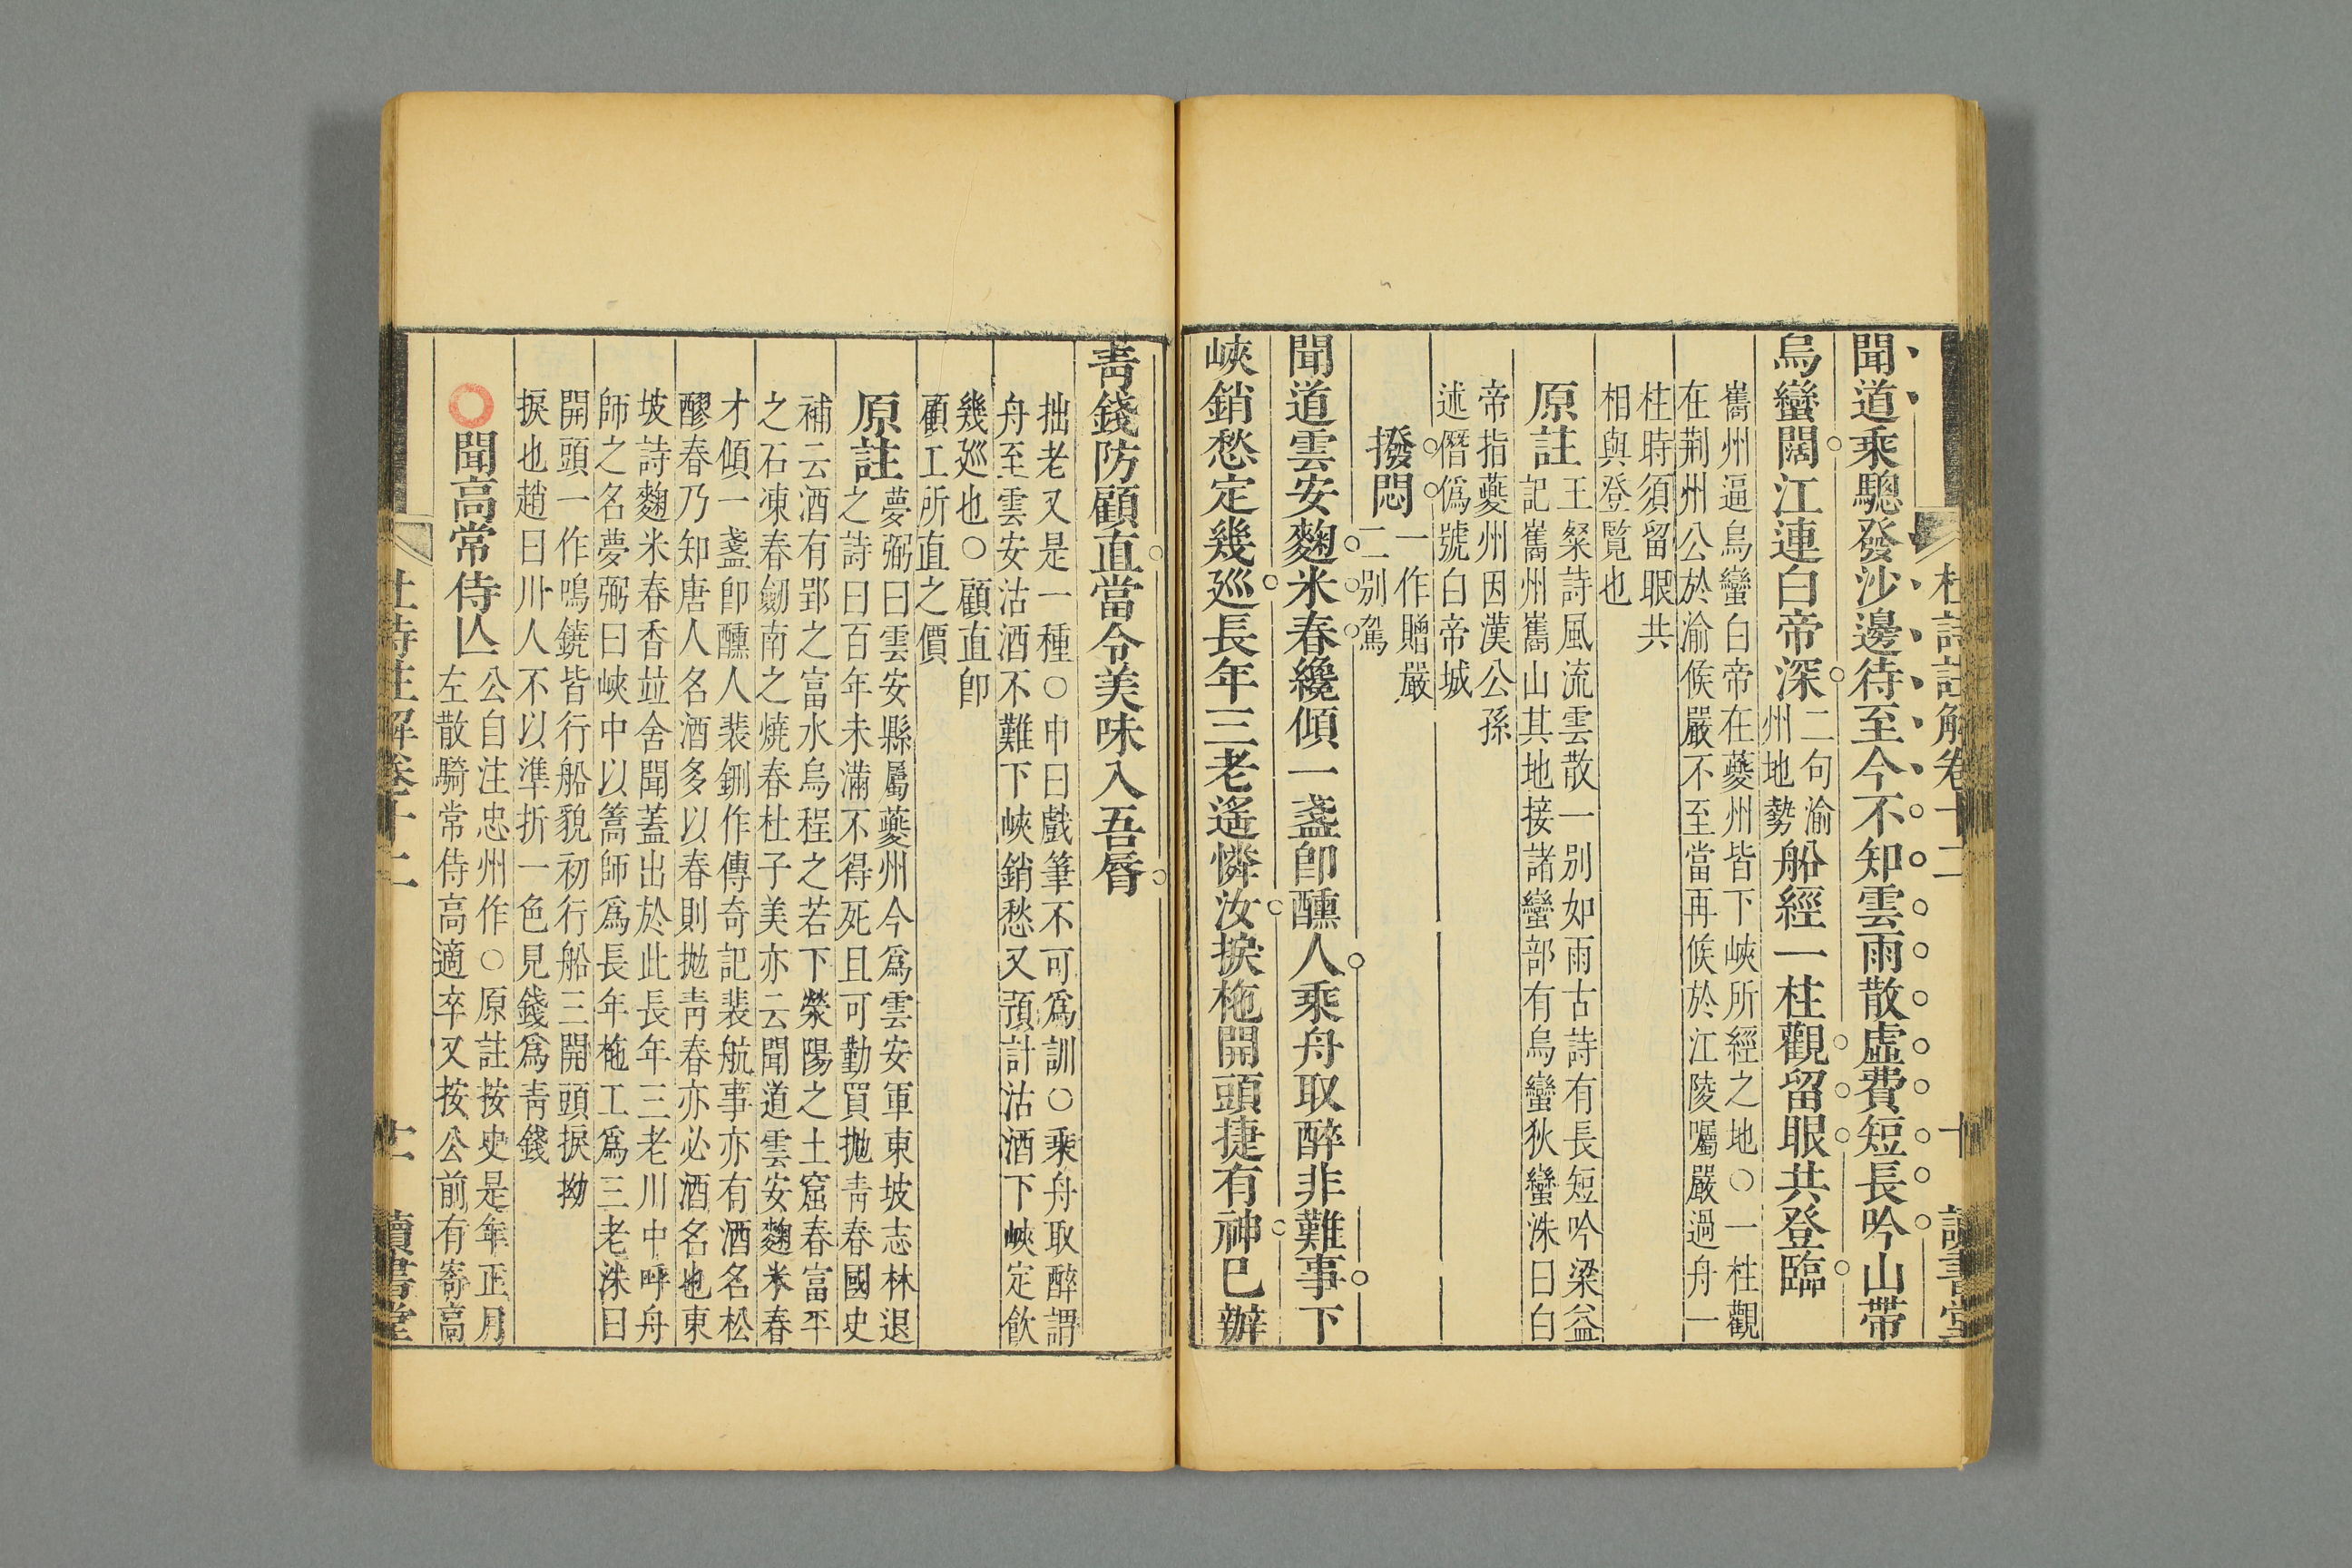 杜詩註解卷十二
十
讀書堂
聞道乘驄發沙邊待至今不知雲雨散虛費短長吟山帶
烏蠻闊江連白帝深
二句渝
州地勢
船經一柱觀留眼共登臨
巂州逼烏蠻白帝在夔州皆下峽所經之地○一柱觀
在荆州公於渝候嚴不至當再候於江陵囑嚴過舟一
柱時須留眼共
相與登覽也
原註
王粲詩風流雲散一别如雨古詩有長短吟梁益
記巂州巂山其地接諸蠻部有烏蠻狄蠻洙曰白
帝指夔州因漢公孫
述僭僞號白帝城
撥悶
一作贈嚴
二别駕
聞道雲安麴米春纔傾一盞卽醺人乘舟取醉非難事下
峽銷愁定幾廵長年三老遙憐汝捩柁開頭捷有神已辦
青錢防顧直當令美味入吾脣
拙老又是一種○申曰戲筆不可爲訓○乘舟取醉謂
舟至雲安沽酒不難下峽銷愁又預計沽酒下峽定飲
幾廵也○顧直卽
顧工所直之價
原註
夢弼曰雲安縣屬夔州今爲雲安軍東坡志林退
之詩曰百年未滿不得死且可勤買抛青春國史
補云酒有郢之富水烏程之若下滎陽之土窟春富平
之石凍春劒南之燒春杜子美亦云聞道雲安麴米春
才傾一盞卽醺人裴鉶作傳奇記裴航事亦有酒名松
醪春乃知唐人名酒多以春則抛青春亦必酒名也東
坡詩麴米春香並舍聞蓋出於此長年三老川中呼舟
師之名夢弼曰峽中以篙師爲長年柂工爲三老洙曰
開頭一作鳴鐃皆行船貌初行船三開頭捩拗
捩也趙曰川人不以準折一色見錢爲青錢
聞高常侍亾
公自注忠州作○原註按史是年正月
左散騎常侍高適卒又按公前有寄高
杜詩註解卷十二
十一
讀書堂